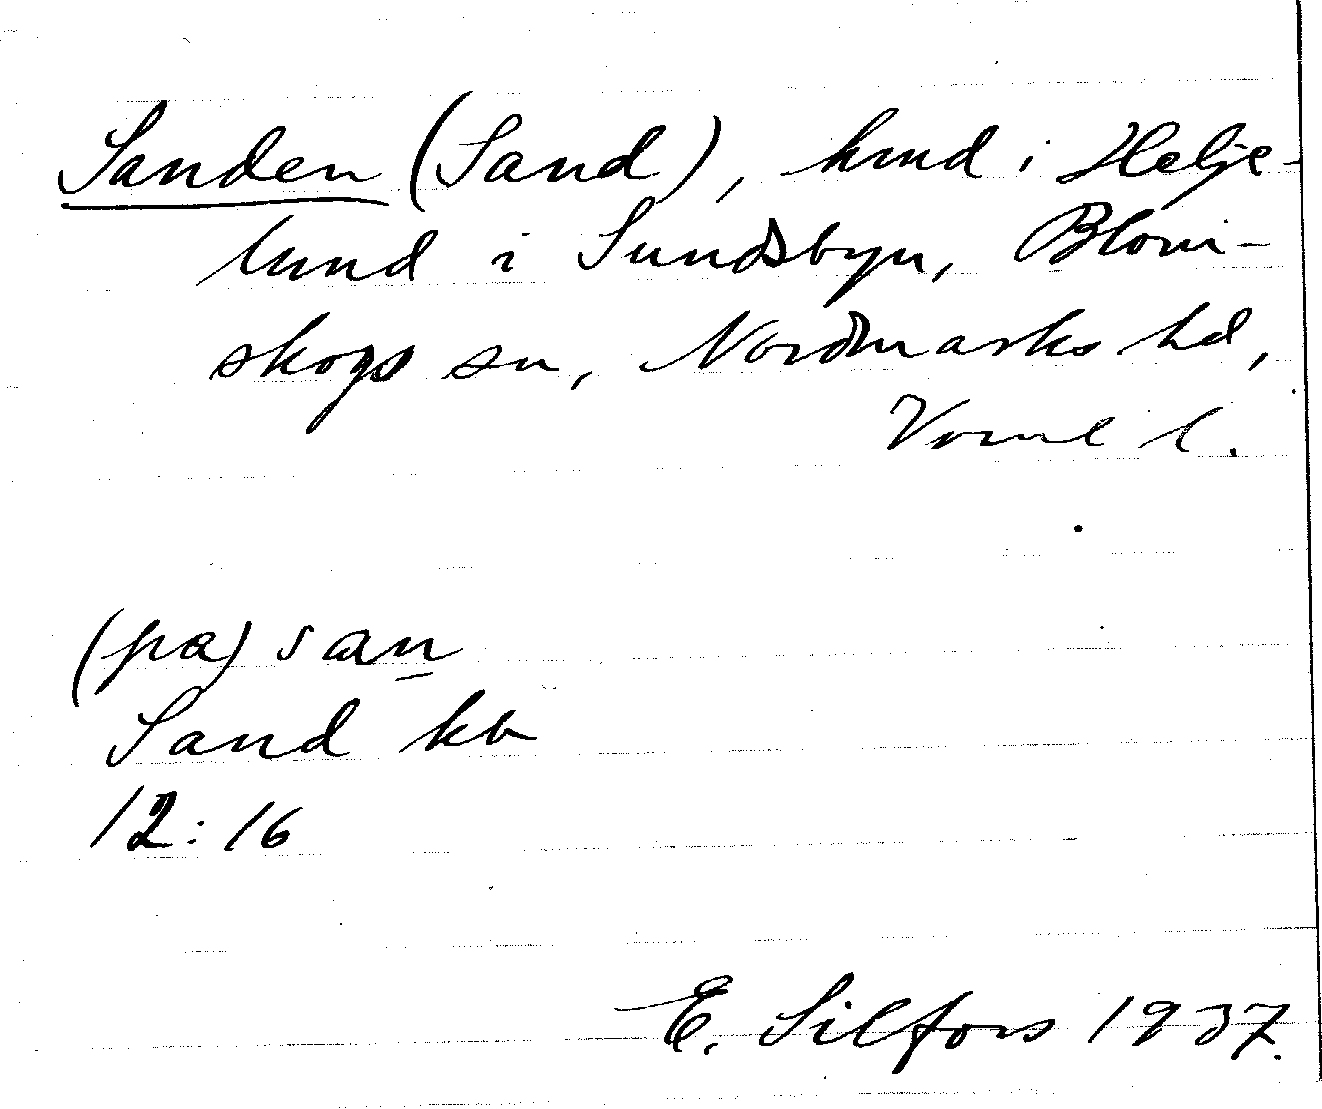 Sanden (Sand), hmd i Helje-
lund i Sundsbyn, Blom-
skogs sn, Nordmarks hd,
Värml l.
(pa) san
Sand kb
12:16
E. Silfors 1937.